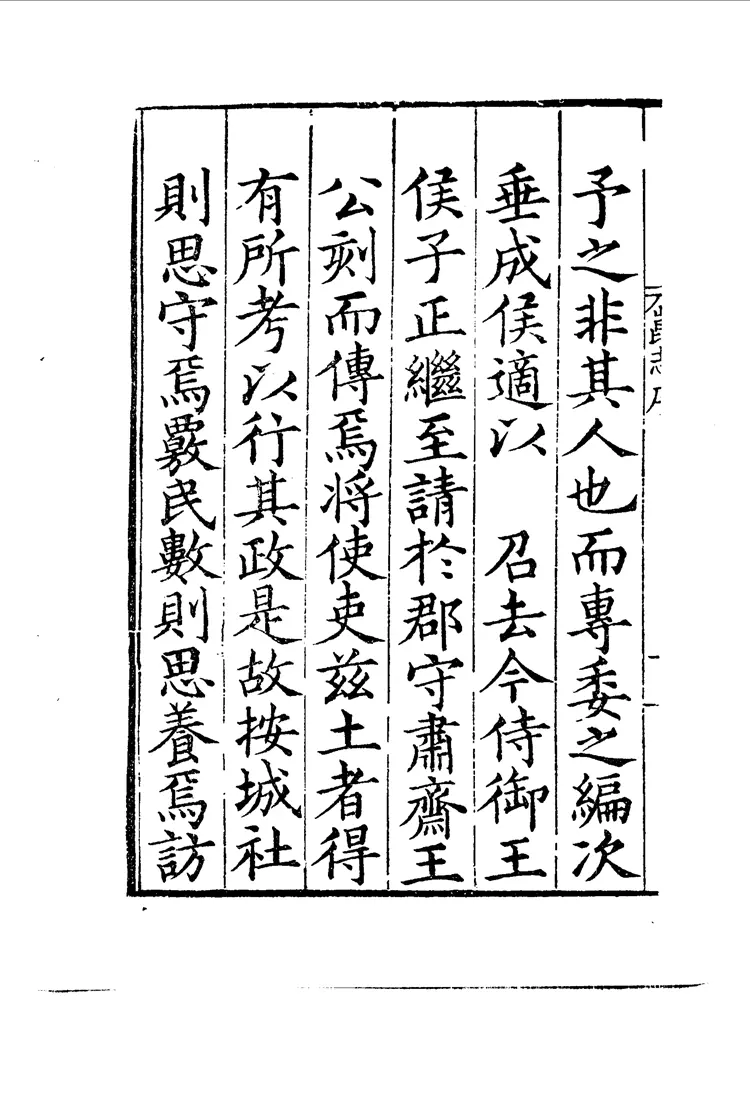 予之非其人也而專委之編次
垂成侯適以　召去今侍御王
侯子正繼至請於郡守肅齋王
公刻而傳焉將使吏兹土者得
有所考以行其政是故按城社
則思守焉覈民數則思養焉訪